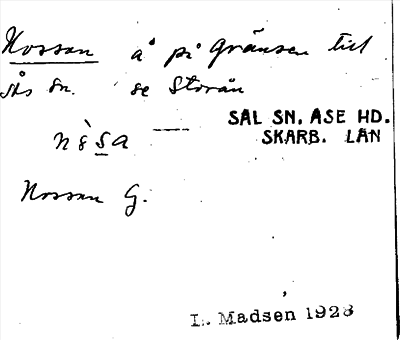 Nossan å på gränsen till
sås sn. se Storån
SAL SN. ÅSE HD.
SKARB. LÄN
Nossan G.
L. Madsen 1928